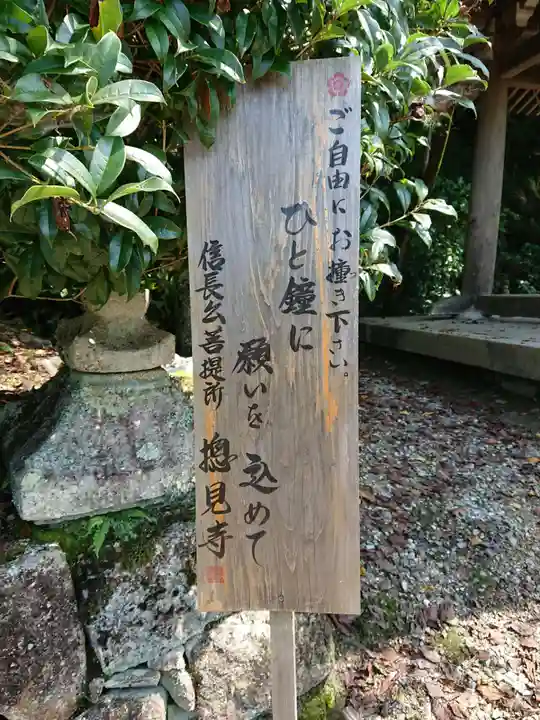 ご自由にお撞き下さい。
ひと鐘に
願いを込めて
信長公菩提所 摠見寺